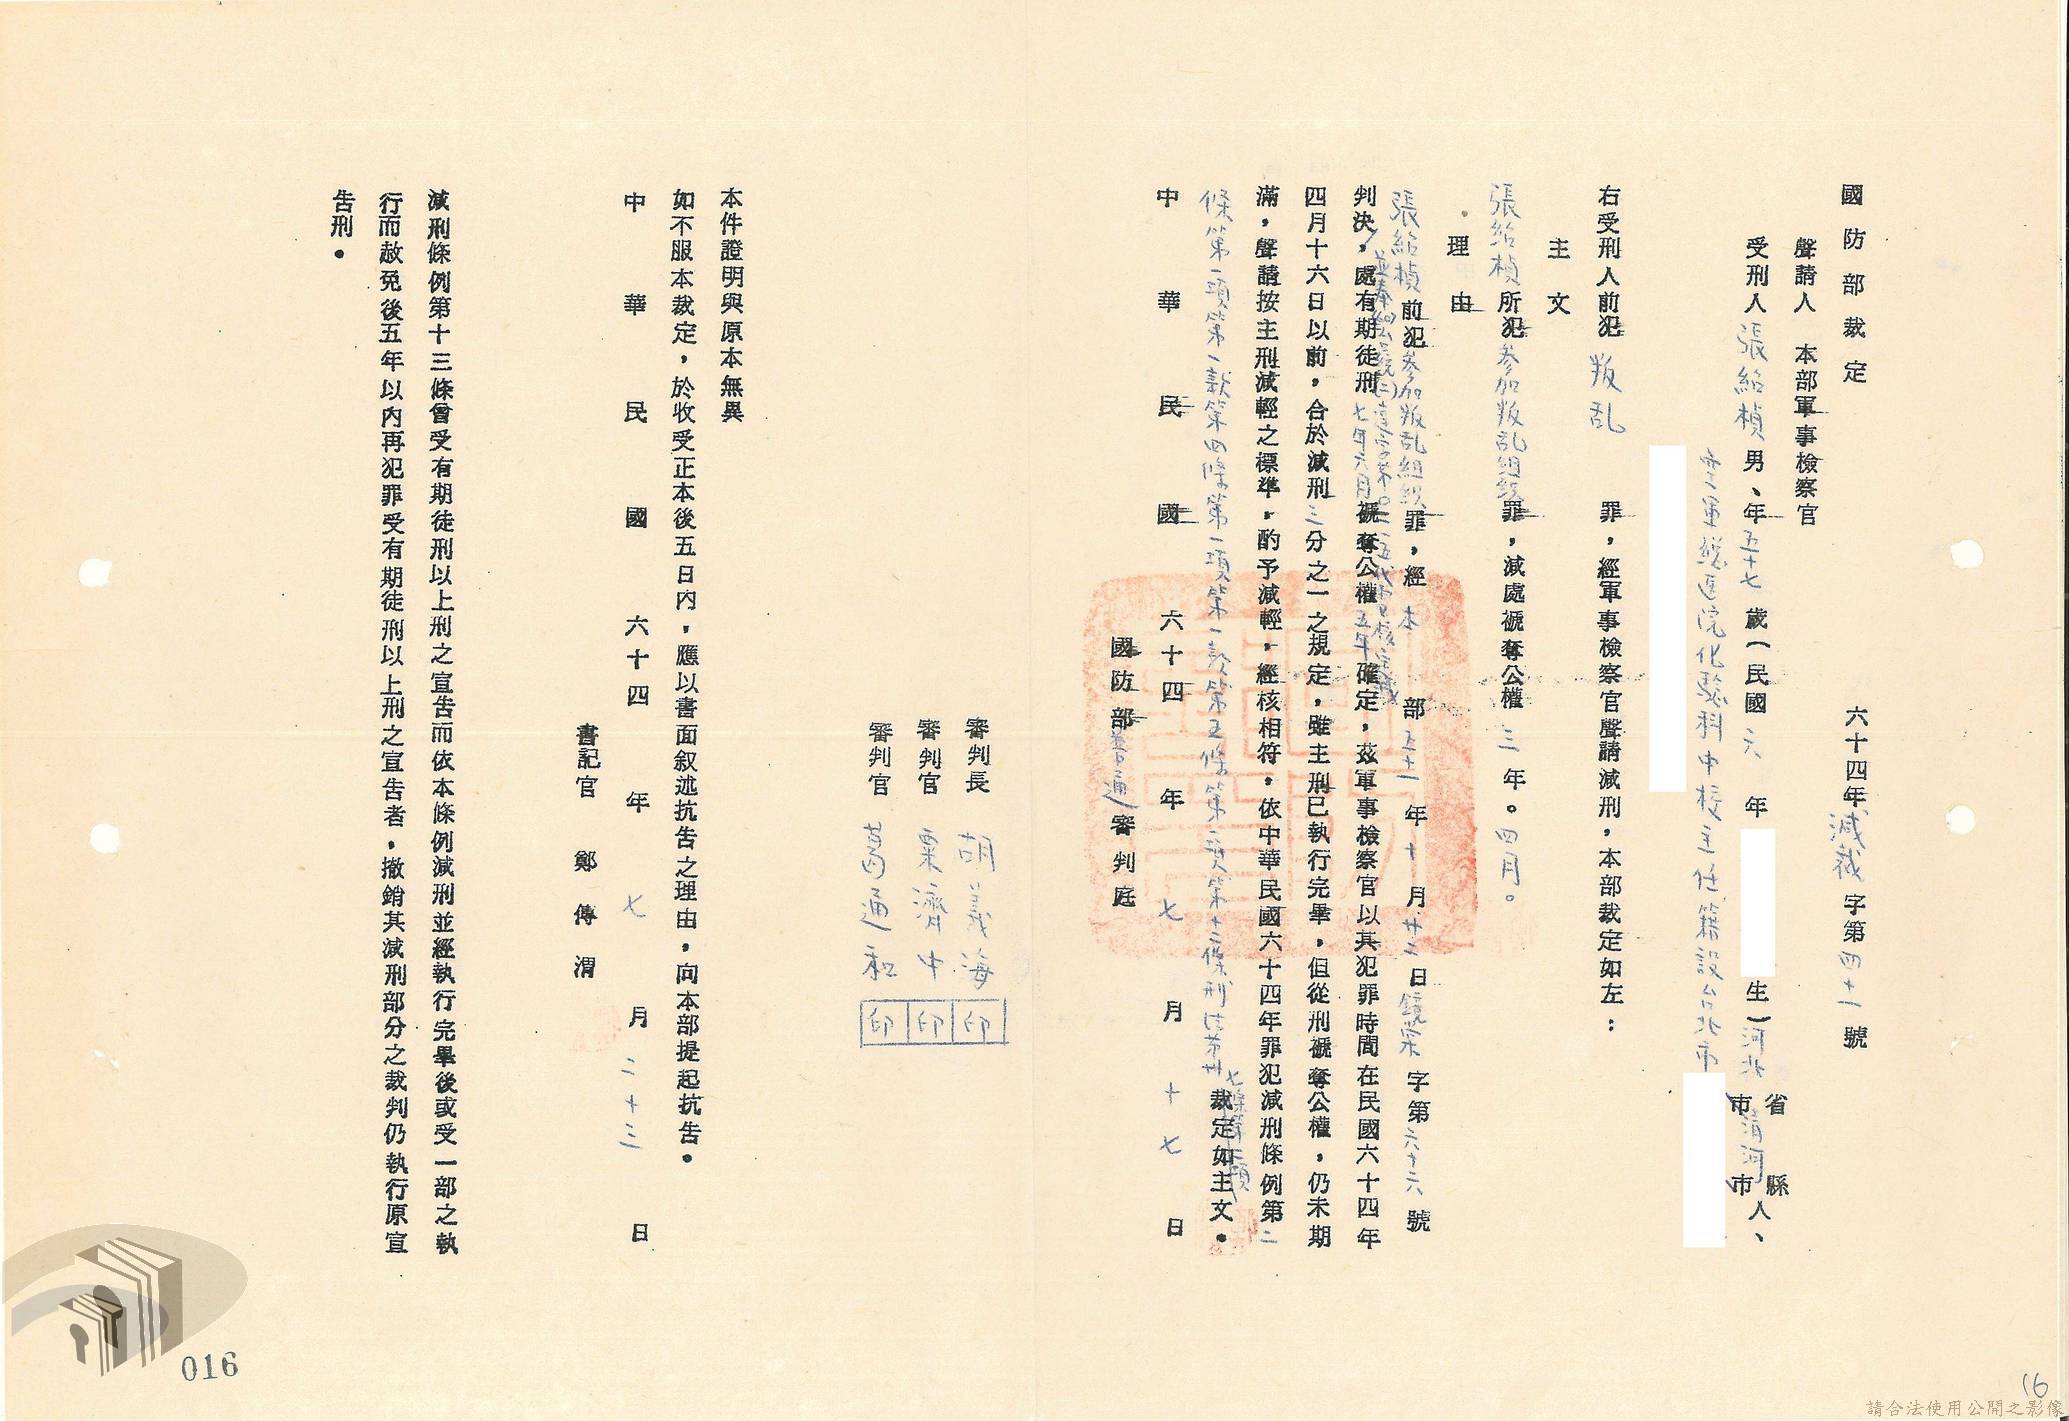 國防部裁定　六十四年減裁字第四十一號
聲請人　本部軍事檢察官
受刑人張紹楨男、年五十七歲（民國六年　生）河北省市清河縣市人、
空軍總醫院化驗科中校主任、籍設台北市
右受刑人前犯叛乱罪，經軍事檢察官聲請減刑，本部裁定如左：
主文
張紹楨所犯參加叛乱組織罪，減處褫奪公權三年。四月。
理由
張紹楨前犯參加叛乱組織罪，經本部五十一年十月廿二日鏡棠字第六十六號
判決，處有期徒刑七年六月褫奪公權五年確定，茲軍事檢察官以其犯罪時間在民國六十四年
四月十六日以前，合於減刑三分之一之規定，雖主刑已執行完畢，但從刑褫奪公權，仍未期
滿，聲請按主刑減輕之標準，酌予減輕，經核相符，依中華民國六十四年罪犯減刑條例第二
條第一項第一款第四條第一項第一款第五條第二項第十二條刑法第卅七條第二項裁定如主文。
中華民國六十四年七月十七日
國防部普通審判庭
審判長　胡義海　印
審判官　粟濟中　印
審判官　葛通和　印
本件證明與原本無異
如不服本裁定，於收受正本後五日內，應以書面叙述抗告之理由，向本部提起抗告。
中華民國六十四年七月二十三日
書記官　鄭傳渭
減刑條例第十三條曾受有期徒刑以上刑之宣告而依本條例減刑並經執行完畢後或受一部之執
行而赦免後五年以內再犯罪受有期徒刑以上刑之宣告者，撤銷其減刑部分之裁判仍執行原宣
告刑。
016
16
請合法使用公開之影像